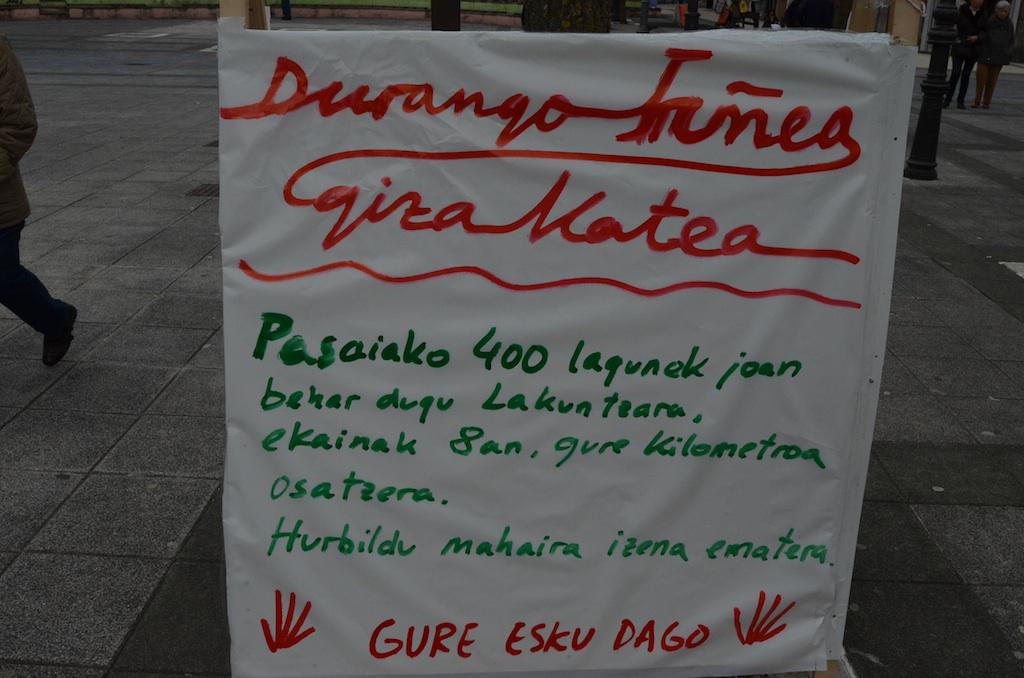 Durango Iruñea
giza Katea
Pasaiako 400 lagunek joan
behar dugu Lakuntzara,
ekainak 8an, gure kilometroa
osatzera.
Hurbildu mahaira izena ematera.
GURE ESKU DAGO